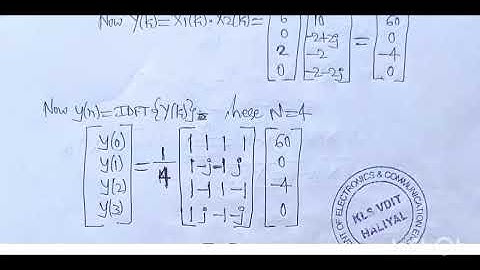 Now Y(k)= X1(k) · X2(k)= [6 0 2 0] [10 -2+2j -2 -2-2j] = [60 0 -4 0]
Now y(n)= IDFT{Y(k)}; here N=4
[y(0) y(1) y(2) y(3)] = 1/4 [1 1 1 1
1 -j -1 j
1 -1 1 -1
1 j -1 -j] [60 0 -4 0]
OF ELECTRONICS & COMMUNICATION
KLS VDIT
HALIYAL